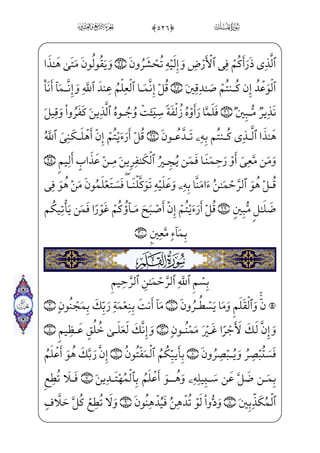 سُورَةُ المُلْكِ ﴿٥٢٦﴾ الجُزْءُ التَّاسِعُ وَالعِشْرُونَ
ٱلَّذِى ذَرَأَكُمْ فِى ٱلْأَرْضِ وَإِلَيْهِ تُحْشَرُونَ ٢٤ وَيَقُولُونَ مَتَىٰ هَـٰذَا
ٱلْوَعْدُ إِن كُنتُمْ صَـٰدِقِينَ ٢٥ قُلْ إِنَّمَا ٱلْعِلْمُ عِندَ ٱللَّهِ وَإِنَّمَآ أَنَا۠
نَذِيرٌ مُّبِينٌ ٢٦ فَلَمَّا رَأَوْهُ زُلْفَةً سِيٓـَٔتْ وُجُوهُ ٱلَّذِينَ كَفَرُوا۟ وَقِيلَ
هَـٰذَا ٱلَّذِى كُنتُم بِهِۦ تَدَّعُونَ ٢٧ قُلْ أَرَءَيْتُمْ إِنْ أَهْلَكَنِىَ ٱللَّهُ
وَمَن مَّعِىَ أَوْ رَحِمَنَا فَمَن يُجِيرُ ٱلْكَـٰفِرِينَ مِنْ عَذَابٍ أَلِيمٍ ٢٨
قُلْ هُوَ ٱلرَّحْمَـٰنُ ءَامَنَّا بِهِۦ وَعَلَيْهِ تَوَكَّلْنَا ۖ فَسَتَعْلَمُونَ مَنْ هُوَ فِى
ضَلَـٰلٍ مُّبِينٍ ٢٩ قُلْ أَرَءَيْتُمْ إِنْ أَصْبَحَ مَآؤُكُمْ غَوْرًا فَمَن يَأْتِيكُم
بِمَآءٍ مَّعِينٍۭ ٣٠
سُورَةُ القَلَمِ
بِسْمِ ٱللَّهِ ٱلرَّحْمَـٰنِ ٱلرَّحِيمِ
نٓ ۚ وَٱلْقَلَمِ وَمَا يَسْطُرُونَ ١ مَآ أَنتَ بِنِعْمَةِ رَبِّكَ بِمَجْنُونٍ ٢
وَإِنَّ لَكَ لَأَجْرًا غَيْرَ مَمْنُونٍ ٣ وَإِنَّكَ لَعَلَىٰ خُلُقٍ عَظِيمٍ ٤
فَسَتُبْصِرُ وَيُبْصِرُونَ ٥ بِأَييِّكُمُ ٱلْمَفْتُونُ ٦ إِنَّ رَبَّكَ هُوَ أَعْلَمُ
بِمَن ضَلَّ عَن سَبِيلِهِۦ وَهُوَ أَعْلَمُ بِٱلْمُهْتَدِينَ ٧ فَلَا تُطِعِ
ٱلْمُكَذِّبِينَ ٨ وَدُّوا۟ لَوْ تُدْهِنُ فَيُدْهِنُونَ ٩ وَلَا تُطِعْ كُلَّ حَلَّافٍ